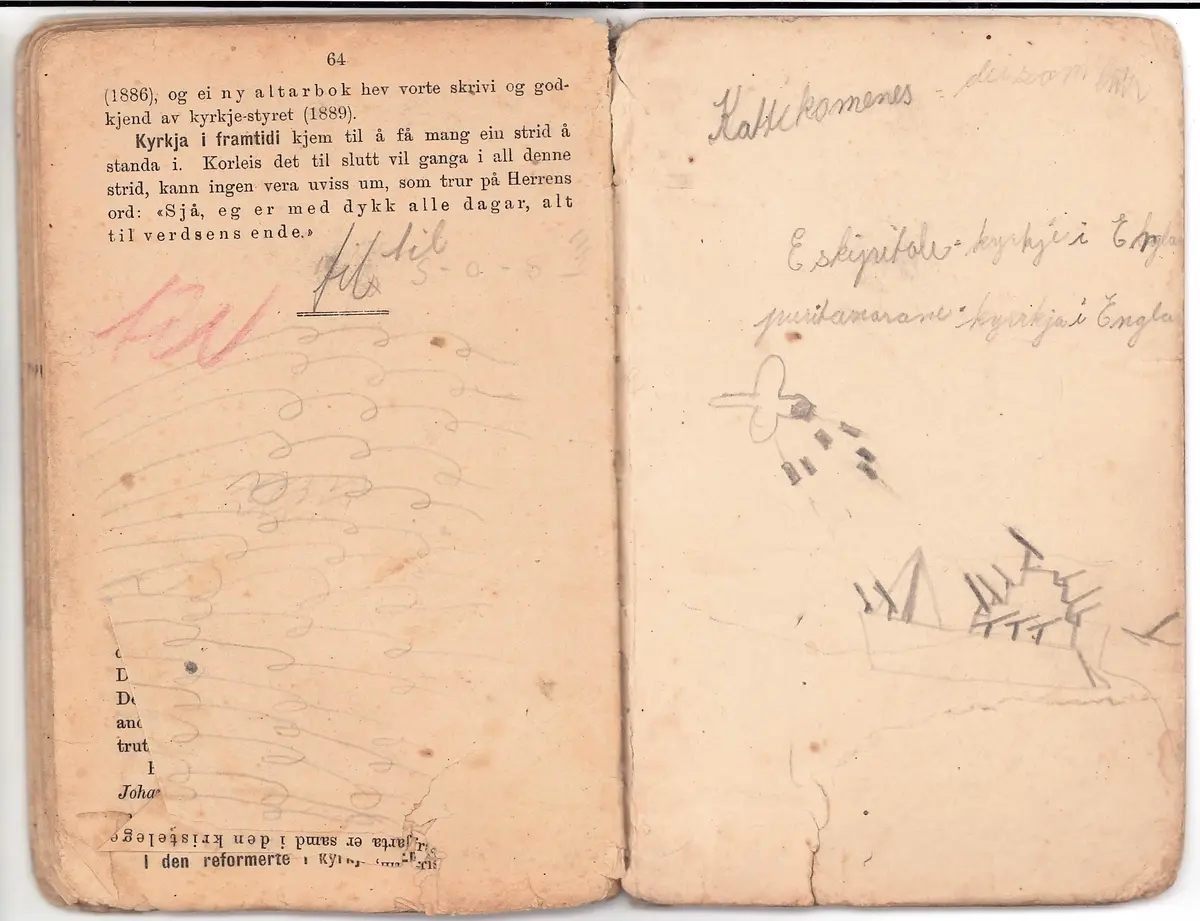 64
(1886), og ei ny altarbok hev vorte skrivi og god-
kjend av kyrkje-styret (1889).
Kyrkja i framtidi kjem til å få mang ein strid å
standa i. Korleis det til slutt vil ganga i all denne
strid, kann ingen vera uviss um, som trur på Herrens
ord: «Sjå, eg er med dykk alle dagar, alt
til verdsens ende.»
til til
D
De
and
trut
Joha
hjarta er samd i den kristelege
I den reformerte
Kattekomenes = det som
Eskipitale = kyrkje i Engla
puritanarane = kyrkja i Engla